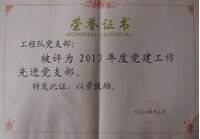 荣誉证书
HONORARY CREDENTIAL
工程队党支部：
被评为2013年度党建工作
先进党支部。
特发此证，以资鼓励。